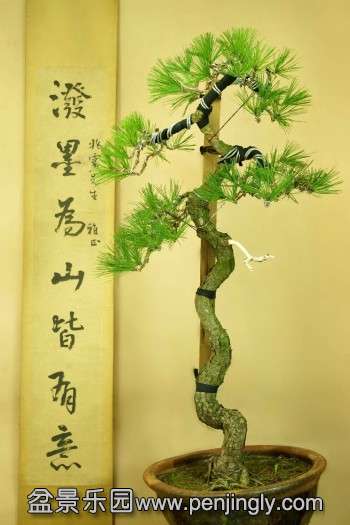 潑墨為山皆有意
雅正
盆景乐园www.penjingly.com